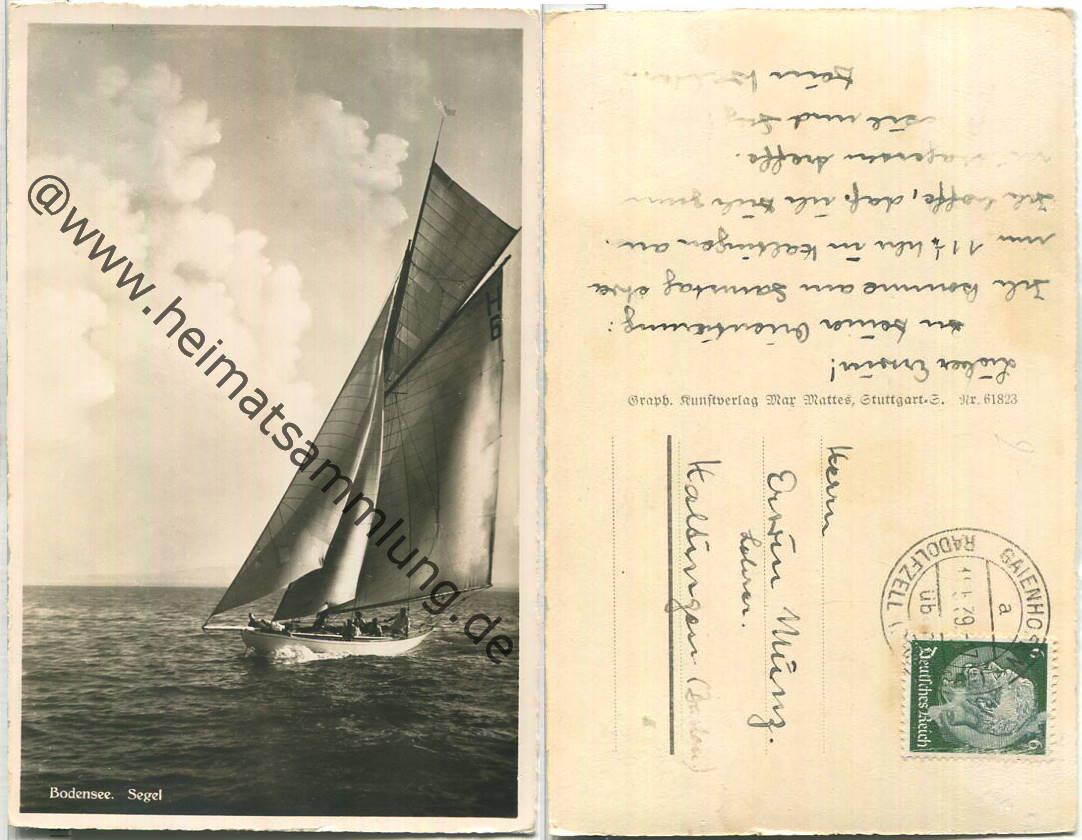 @www.heimatsammlung.de
H6
Bodensee. Segel
Lieber Erwin!
zu Deiner Orientierung:
Ich komme am Samstag etwa
um 11 ½ Uhr in Kaltingen an.
Ich hoffe, daß ich Dich
treffe.
und
Dein
Graph. Kunstverlag Max Mattes, Stuttgart-S. Nr. 61823
Herrn
Erwin Münz.
Lehrer.
(Baden)
GAIENHOFEN
a
RADOLFZELL
üb
Deutsches Reich
6 6